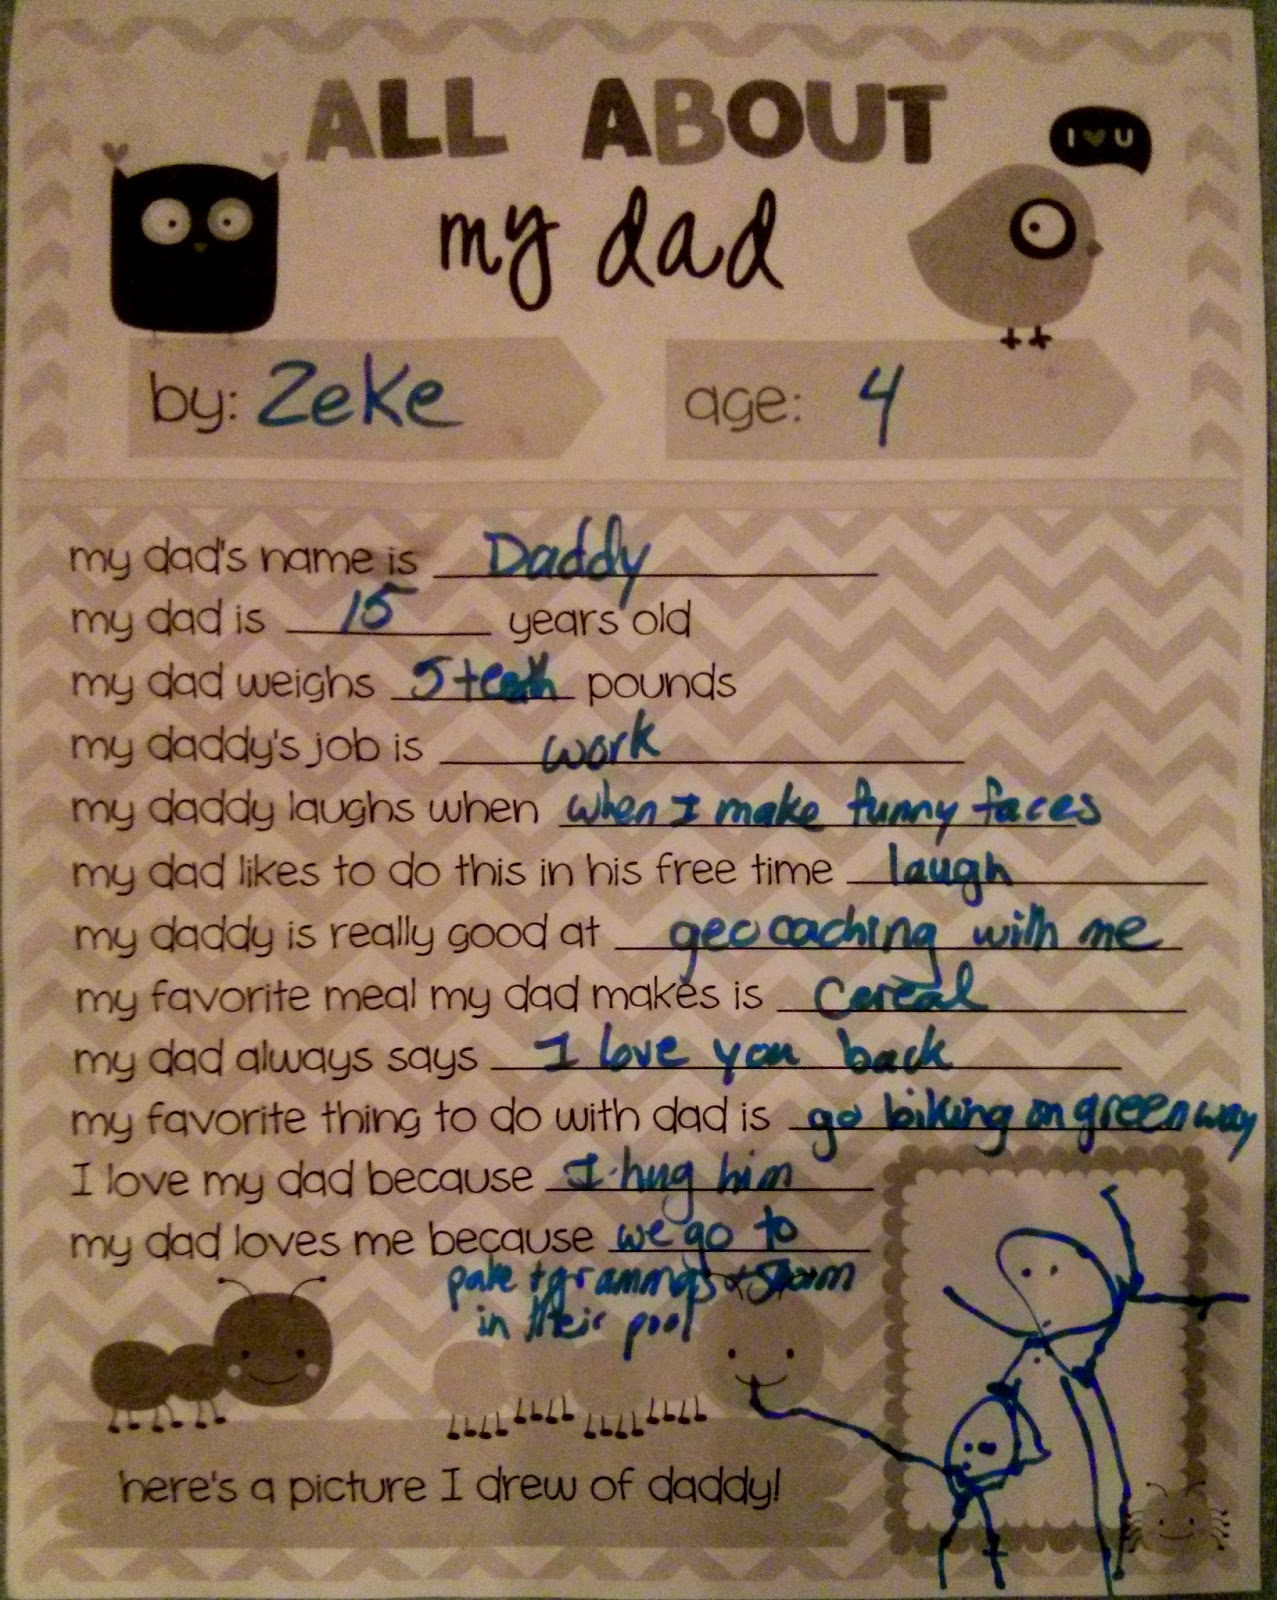 ALL ABOUT
I ♥ U
my dad
by: Zeke age: 4
my dad's name is Daddy
my dad is 15 years old
my dad weighs 5 teeth pounds
my daddy's job is work
my daddy laughs when when I make funny faces
my dad likes to do this in his free time laugh
my daddy is really good at geocoaching with me
my favorite meal my dad makes is Cereal
my dad always says I love you back
my favorite thing to do with dad is go biking on greenway
I love my dad because I hug him
my dad loves me because we go to
+ grammas +
in their pool
here's a picture I drew of daddy!